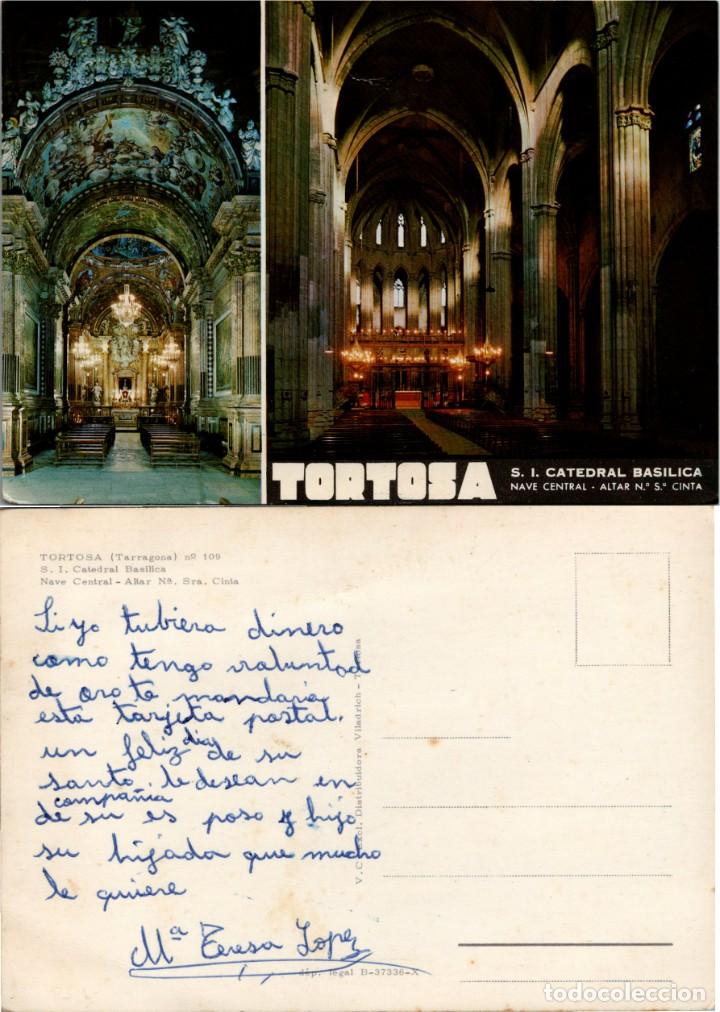 TORTOSA
S. I. CATEDRAL BASILICA
NAVE CENTRAL - ALTAR N.ª S.ª CINTA
TORTOSA (Tarragona) nº 109
S. I. Catedral Basílica
Nave Central - Altar Nª. Sra. Cinta
Si yo tubiera dinero
como tengo valuntad
de oro te mandaria
esta tarjeta postal.
un feliz dia de su
santo. le desean en
compañia
de su es poso y hijo
su hijada que mucho
le quiere
Mª Teresa Lopez
dép. legal B-37336-X
Distribuidora Viladrich - Tortosa
todocoleccion.net